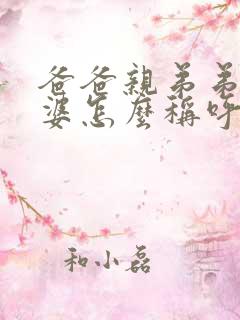 爸爸親弟弟
婆怎麼稱呼
和小磊